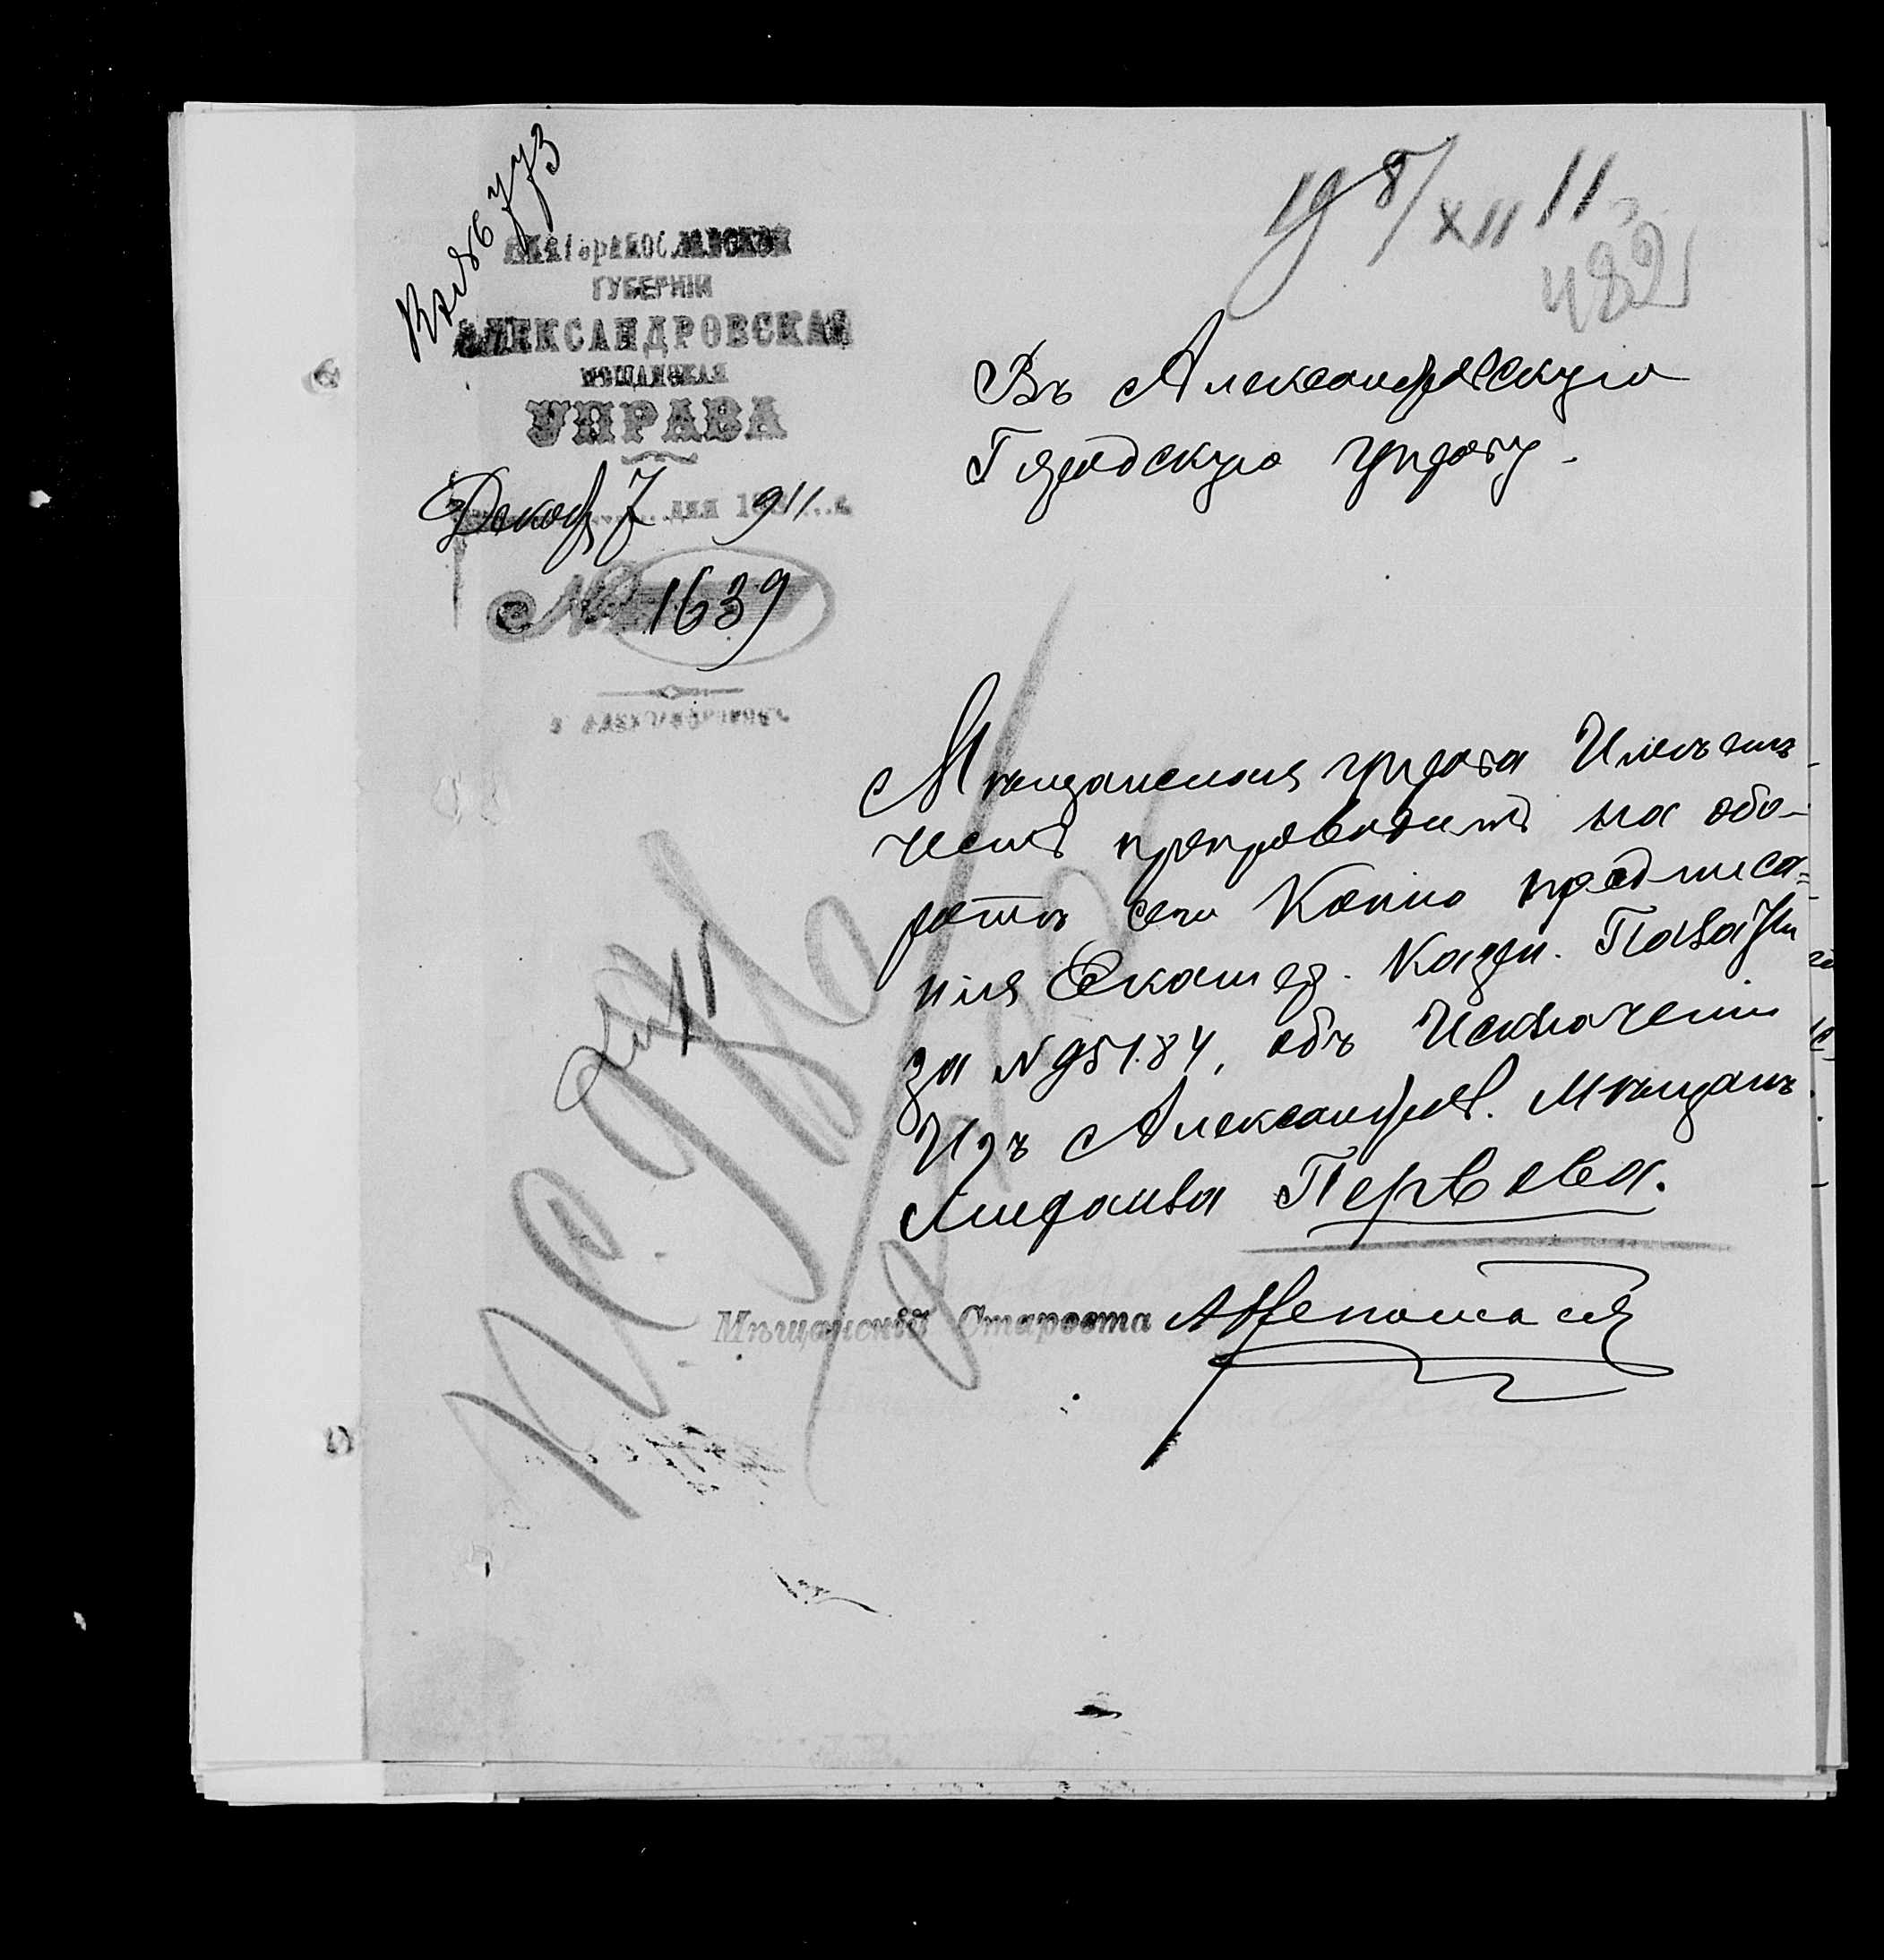 19 8/XII 11
482
ЕКАТЕРИНОСЛАВСКОЙ
ГУБЕРНІИ
АЛЕКСАНДРОВСКАЯ
МѢЩАНСКАЯ
УПРАВА
Декаб 7 дня 1911 г.
№ 1639
г. АЛЕКСАНДРОВСКЪ
Въ Александровскую
Городскую управу.
Мѣщанская управа Имѣетъ
честь препроводить на обо-
ротѣ сего Копію предписа=
нія Екатер. Казен. Палаты
за № 95184, объ Исключеніи
Изъ Александров. Мѣщанъ
Первова.
Мѣщанскій Староста